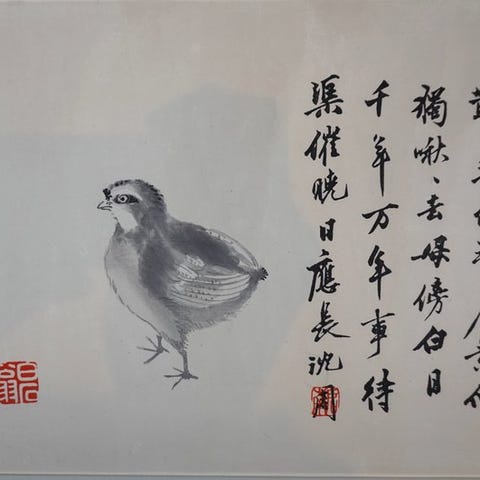 獨啾、去母傍白日
千年万年事待
渠催曉日應長沈周